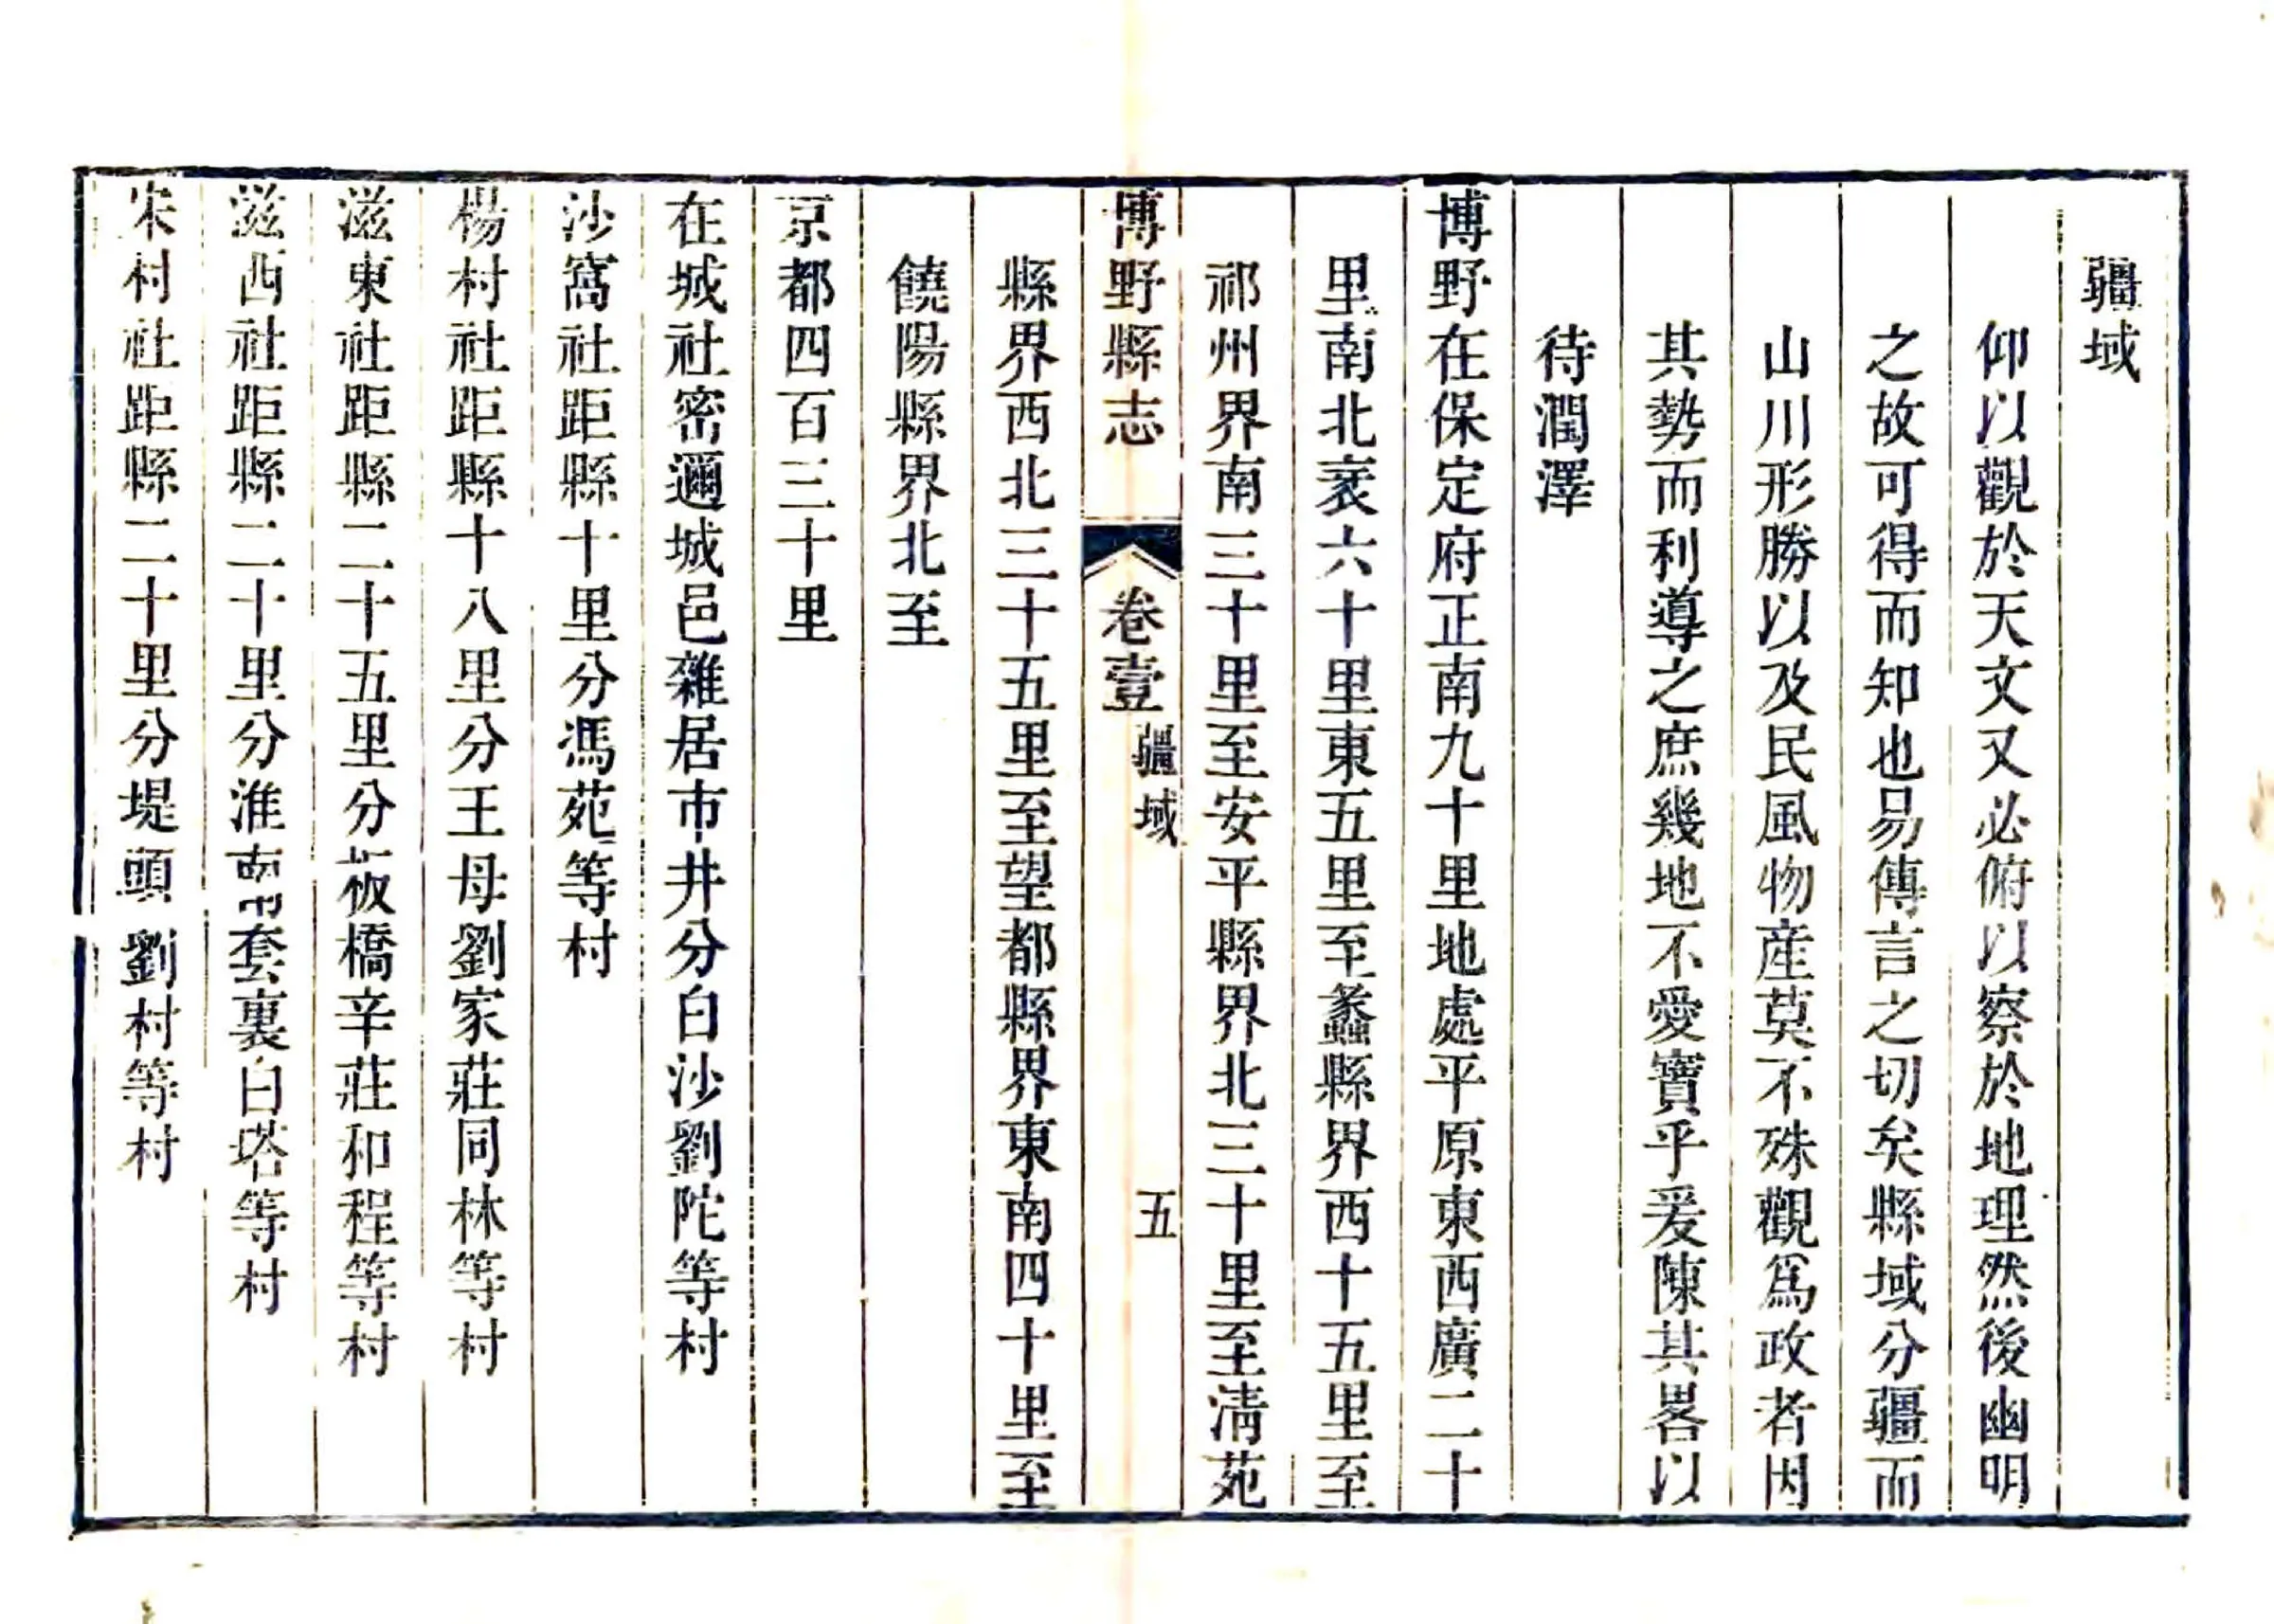 疆域
仰以觀於天文又必俯以察於地理然後幽明
之故可得而知也易傳言之切矣縣域分疆而
山川形勝以及民風物産莫不殊觀爲政者因
其勢而利導之庶幾地不愛寶乎爰陳其畧以
待潤澤
博野在保定府正南九十里地處平原東西廣二十
里南北袤六十里東五里至蠡縣界西十五里至
祁州界南三十里至安平縣界北三十里至淸苑
博野縣志 卷壹 疆域 五
縣界西北三十五里至望都縣界東南四十里至
饒陽縣界北至
京都四百三十里
在城社密邇城邑雜居市井分白沙劉陀等村
沙窩社距縣十里分馮苑等村
楊村社距縣十八里分王母劉家莊同林等村
滋東社距縣二十五里分板橋辛莊和程等村
滋西社距縣二十里分淮南套裏白塔等村
宋村社距縣二十里分堤頭劉村等村